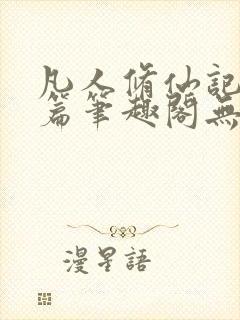 凡人脩仙記
篇筆趣閣無
漫星語